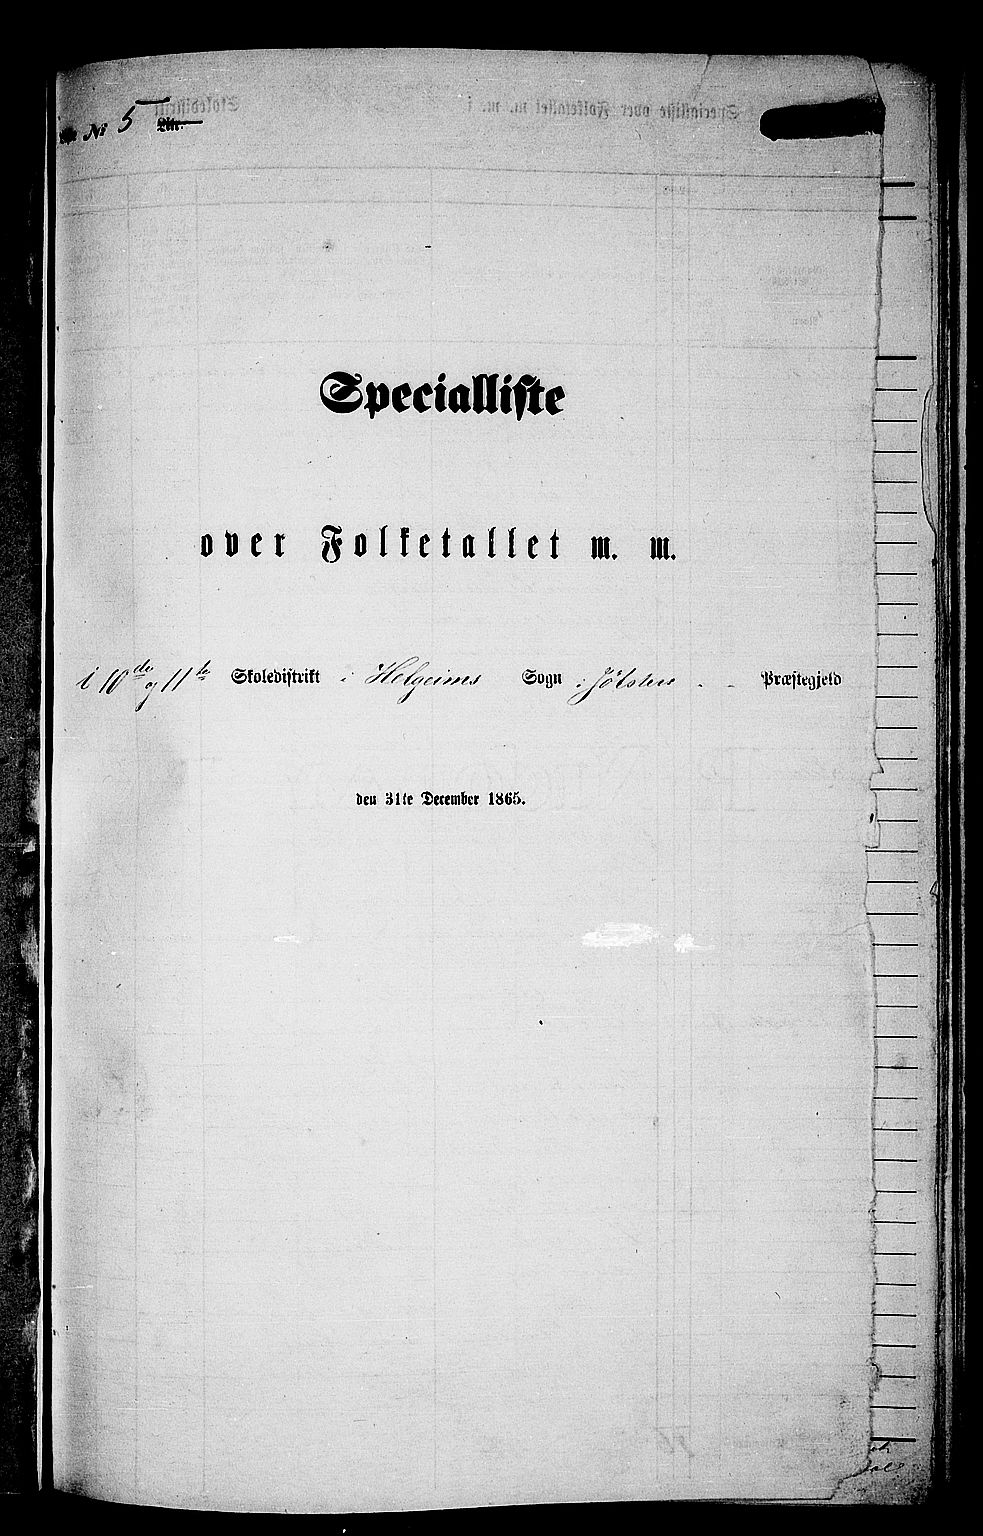 No 5 Litr.
Specialliste
over Folketallet m. m.
i 10de og 11te Skoledistrikt i Helgeims Sogn i Jølsters Præstegjeld
den 31te December 1865.